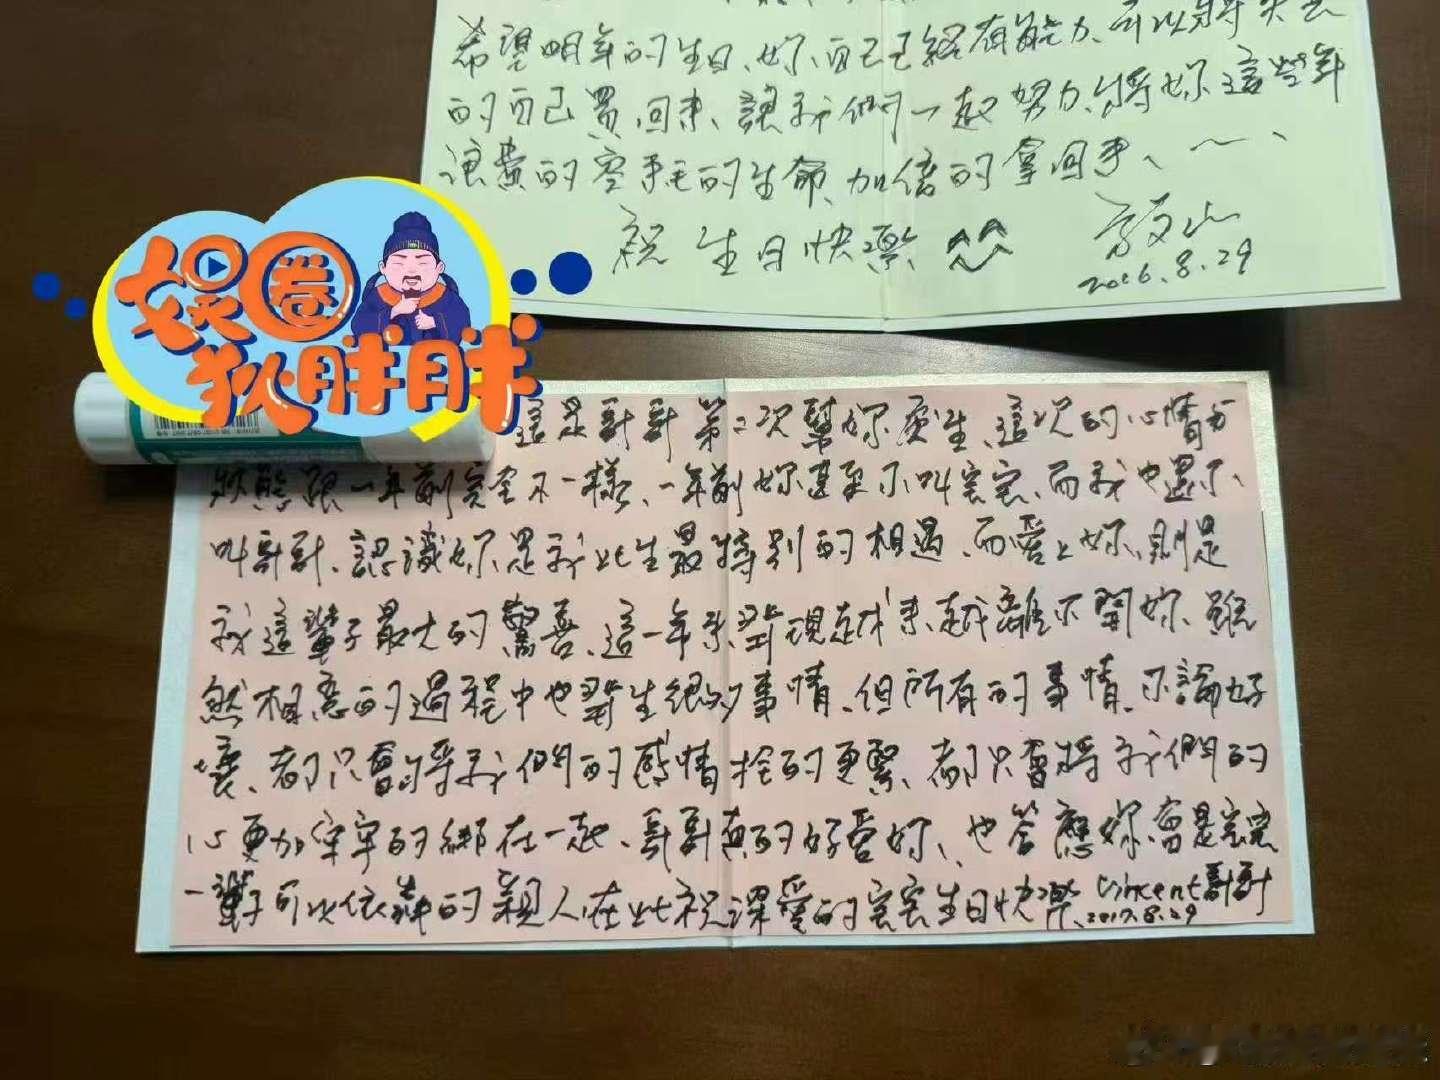 希望明年的生日、妳、自己已經有能力、可以將失去
的自己買回來、讓我們一起努力、將妳這些年
浪費的空耗的生命、加倍的拿回來、
祝 生日快樂
2016.8.29
娛圈
狄胖胖
這是哥哥第二次幫妳慶生、這次的心情与
狀態跟一年前完全不一樣、一年前妳甚至不叫寶寶、而我也還不
叫哥哥、認識妳是我此生最特別的相遇、而愛上妳、則是
我這輩子最大的驚喜、這一年來發現越來越離不開妳、雖
然相戀的過程中也發生很多事情、但所有的事情、不論好
壞、都只會將我們的感情拴的更緊、都只會將我們的
心更加牢牢的綁在一起、哥哥真的好愛妳、也答應妳會是寶寶
一輩子可以依靠的親人在此祝深愛的寶寶生日快樂、Vincent哥哥
2017.8.29